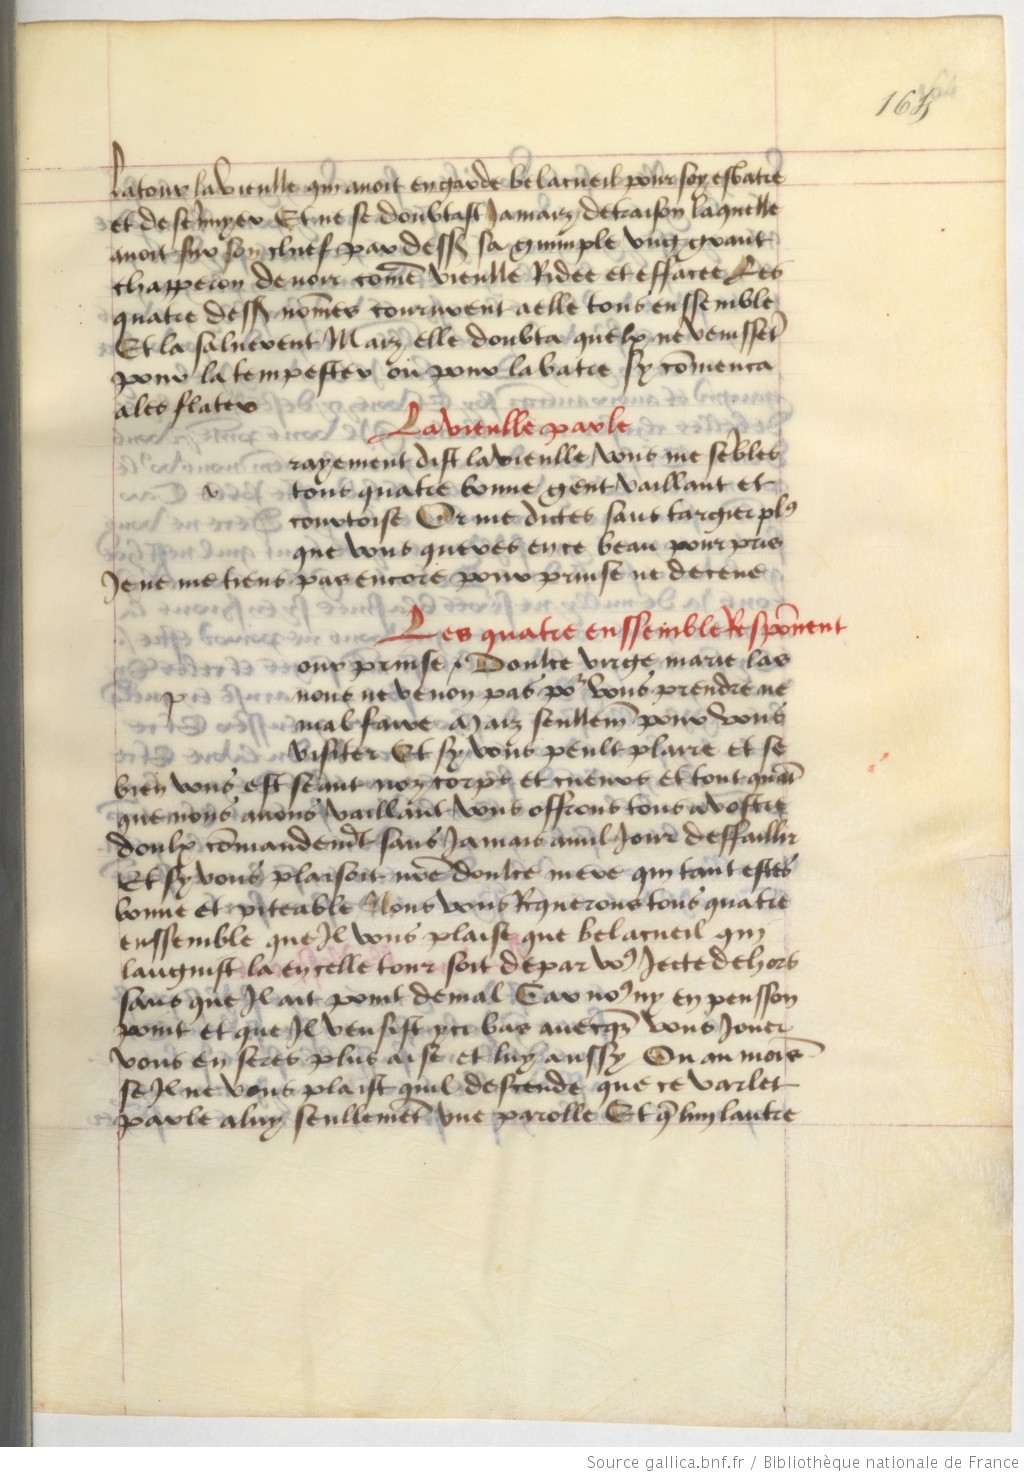 165
la tour la vieulle qui avoit en garde belacueil pour soy esbatre
et desennyer Et ne se doubtast jamaiz de traison laquelle
avoit sur son chief par dessus sa guimple ung grant
chapperon de noir com̃e vieulle Ridee et effacee Les
quatre dess nom̃es coururent a elle tous enssemble
Et la saluerent Maiz elle doubta quelx ne venissẽt
pour la tempester ou pour la batre sy com̃enca
a les flater
La vieulle parle
v
rayement dist la vieulle vous me sẽbles
tous quatre bonne gent vaillant et
courtoise Or me dictes sans targier plꝰ
que vous queres en ce beau pourpris
Je ne me tiens pas encore pour prinse ne deceue
Les quatre enssemble Respõnent
p
our prinse Doulce virge marie las
nous ne venon pas po᷑ vous prendre ne
mal faire Maiz seullem̃ pour vous
visiter Et sy vous peult plaire et se
bien vous est seant noz corps et cueurs et tout quãt
que nous avons vaillant vous offrons tous a vostre
doulx com̃andem̃t sans jamais a nul jour deffaillir
Et sy vous plaisoit nr̃e doulce mere qui tant estes
bonne et piteable Nous vous Requerons tous quatre
enssemble que Il vous plaise que belacueil qui
languist la en celle tour soit de par voꝰ Jecte dehors
sans que Il ait point de mal Car noꝰ ny en pensson
point et que Il vensist ycy bas avecq̃z vous Jouer
vous en seres plus aise et luy aussy Ou au moĩs
se Il ne vous plaist quil descende que ce varlet
parle a luy seullemẽt une parolle Et q̃ lun lautre
Source gallica.bnf.fr / Bibliothèque nationale de France